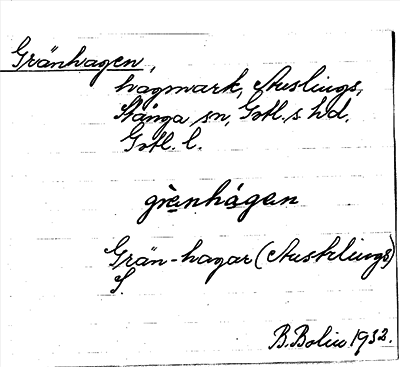 Gränhagen,
hagmark, Auslings,
Stånga sn, Gotl. s. hd.
Gotl. l.
grenhágen
Grän-hagar (Ausklings)
S.
B. Bolin 1932.